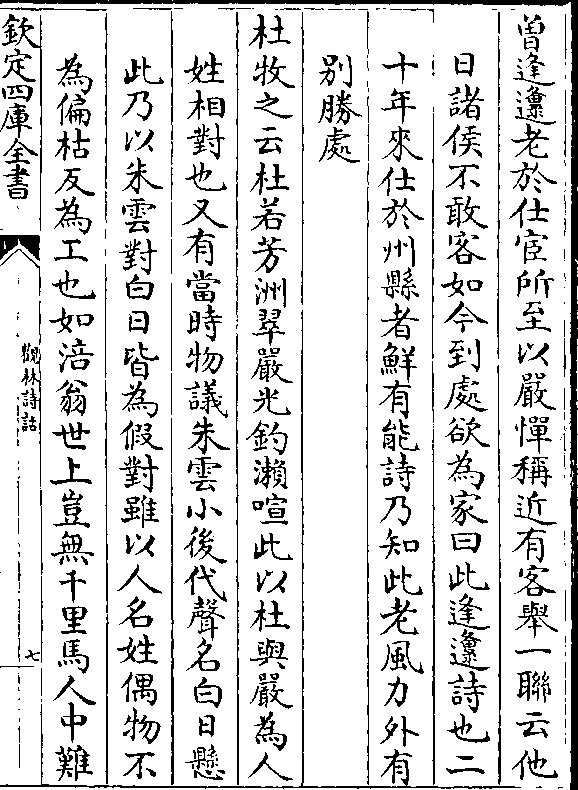 曽逢邍老於仕宦所至以嚴憚稱近有客舉一聯云他
日諸侯不敢客如今到處欲為家曰此逢邍詩也二
十年來仕於州縣者鮮有能詩乃知此老風力外有
别勝處
杜牧之云杜若芳洲翠嚴光釣瀨喧此以杜與嚴為人
姓相對也又有當時物議朱雲小後代聲名白日懸
此乃以朱雲對白日皆為假對雖以人名姓偶物不
為偏枯反為工也如涪翁世上豈無千里馬人中難
欽定四庫全書
觀林詩話
七